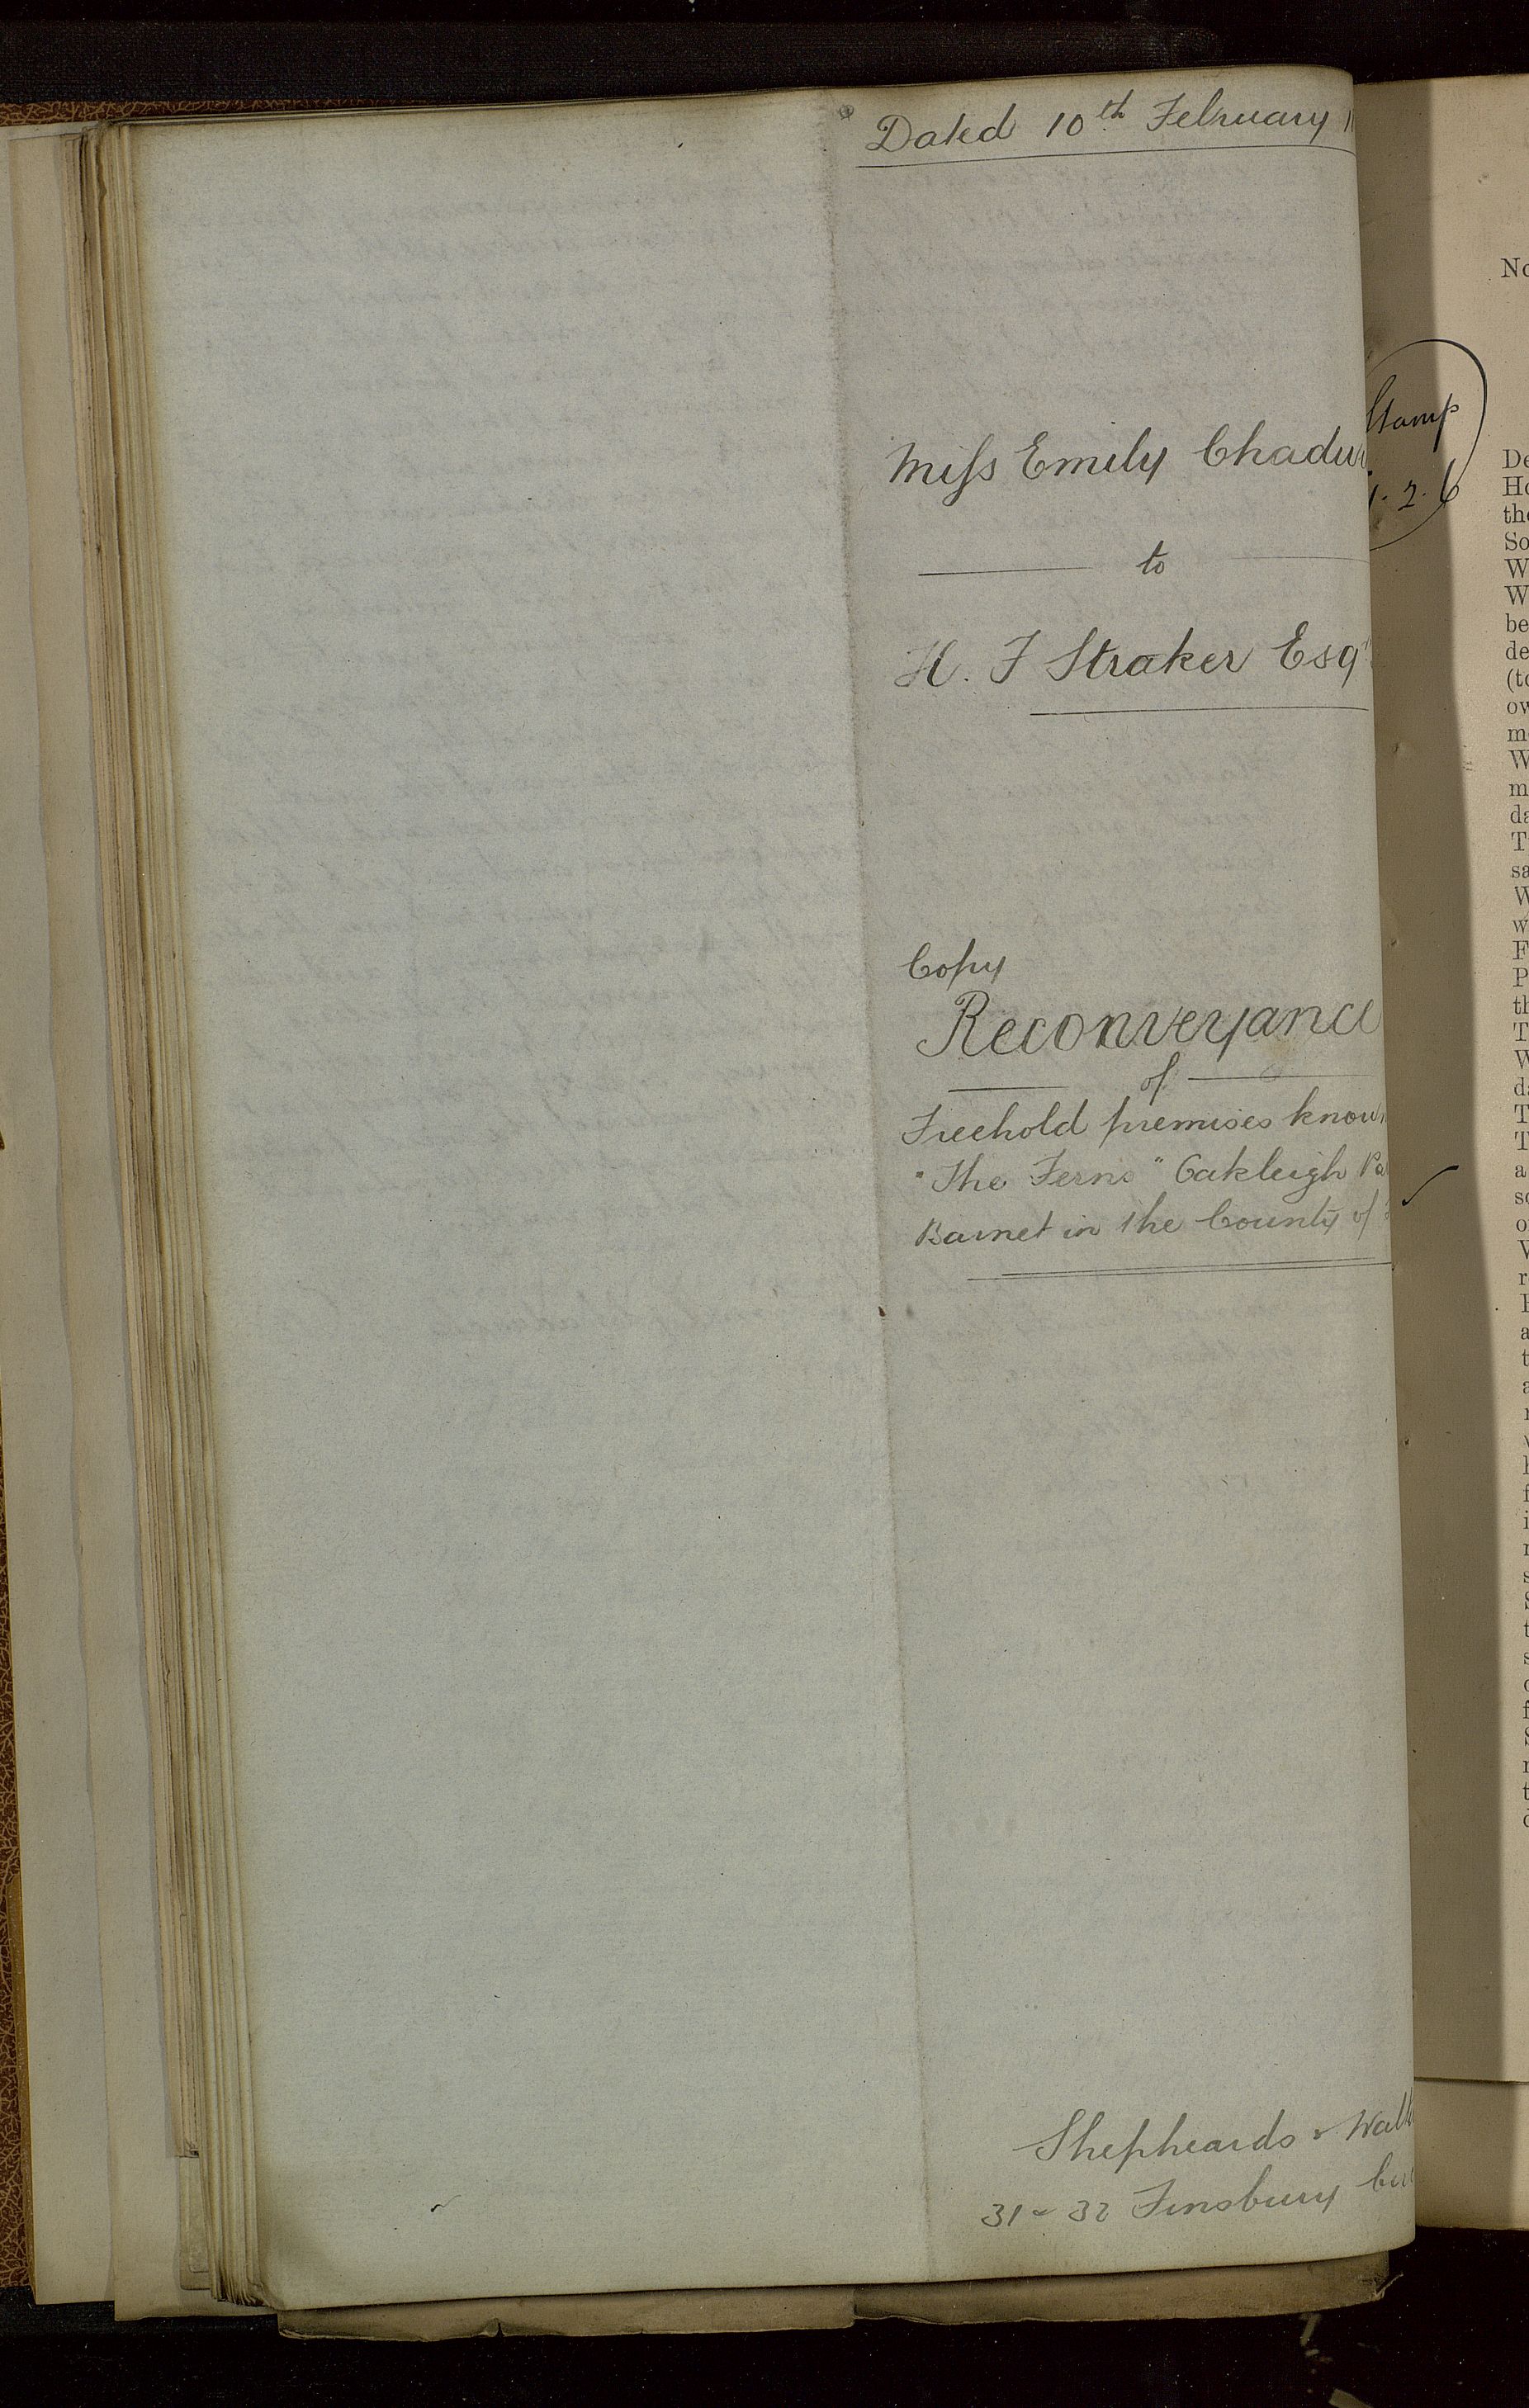 Dated 10th February 1
Miss Emily Chadw
to
H. F Straker Esqr
Copy
Reconveyance
of
Freehold premises known
"The Ferns" Oakleigh Pa
Barnet in the County of
Shepheards & Walt
31 & 32 Finsbury Circ
Stamp
1. 2. 6
No
De
Ho
the
So
W
W
be
de
(to
ow
mo
W
m
da
T
sa
W
w
F
P
th
T
W
da
T
T
a
so
o
V
r